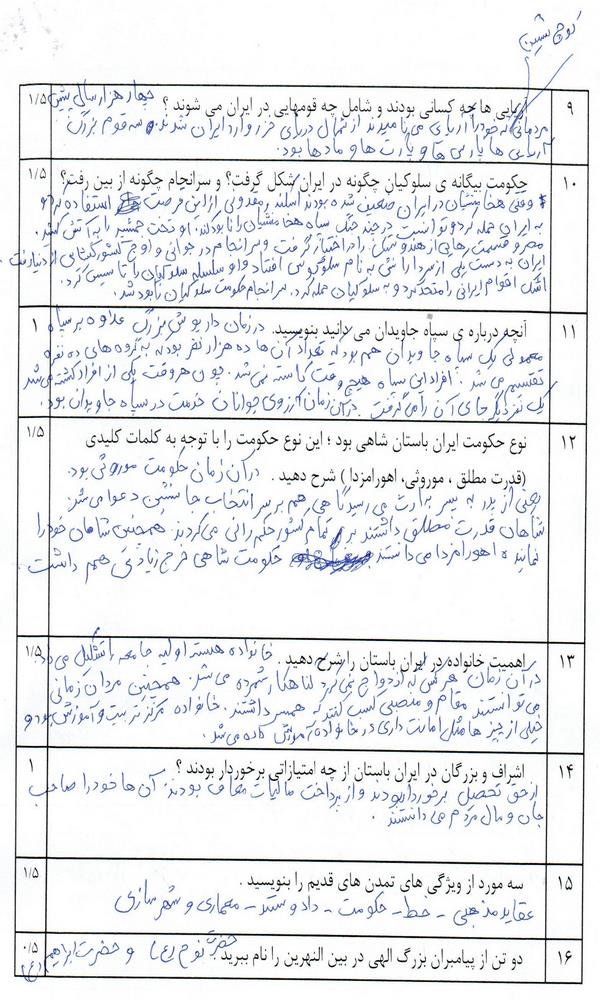 کوچ نشین
۹ آریایی ها چه کسانی بودند و شامل چه قومهایی در ایران می شوند ؟ چهار هزار سال پیش ۱/۵
مردمانی که خود را آریای می نامیدند از شمال دریای خزر وارد ایران شدند. سه قوم بزرگ
آریایی ها پارس ها و پارت ها و مادها بود.
۱۰ حکومت بیگانه ی سلوکیان چگونه در ایران شکل گرفت؟ و سرانجام چگونه از بین رفت؟ ۱/۵
وقتی هخامنشیان در ایران ضعیف شده بودند اسکندر مقدونی از این فرصت استفاده کرد و
به ایران حمله کرد و توانست در چند جنگ سپاه هخامنشیان را نابود کند. او تخت جمشید را به آتش کشید.
مصر و قسمت هایی از هند و را در اختیار گرفت و سرانجام در جوانی و اوج کشورگشایی از دنیا رفت.
ایران به دست یکی از سردارانش به نام سلوکوس افتاد و او سلسله سلوکیان را تاسیس کرد.
اشک اقوام ایرانی را متحد کرد و به سلوکیان حمله کرد. سرانجام حکومت سلوکیان نابود شد.
۱۱ آنچه درباره ی سپاه جاویدان می دانید بنویسید. در زمان داریوش بزرگ علاوه بر سپاه ۱
معمولی یک سپاه جاویدان هم بود که تعداد آن ها ده هزار نفر بود که به گروه های ده نفره
تقسیم می شد. از افراد این سپاه هیچ وقت کاسته نمی شد. چون هر وقت یکی از افراد کشته می شد
یک نفر دیگر جای آن را می گرفت. در آن زمان آرزوی جوانان خدمت در سپاه جاویدان بود.
۱۲ نوع حکومت ایران باستان شاهی بود ؛ این نوع حکومت را با توجه به کلمات کلیدی ۱/۵
(قدرت مطلق ، موروثی، اهورامزدا ) شرح دهید . در آن زمان حکومت موروثی بود.
یعنی از پدر به پسر به ارث می رسید گاهی هم بر سر انتخاب جانشین دعوا می شد.
شاهان قدرت مطلق داشتند بر تمام کشور حکم رانی می کردند. همچنین شاهان خود را
نماینده اهورامزدا می دانستند. حکومت شاهی خرج زیادی هم داشت.
۱۳ اهمیت خانواده در ایران باستان را شرح دهید . خانواده هسته اولیه جامعه را تشکیل می داد. ۱/۵
در آن زمان هر کس که ازدواج نمی کرد گناهکار شمرده می شد. همچنین مردان زمانی
می توانستند مقام و منصبی کسب کنند که همسر داشتند. خانواده مرکز تربیت و آموزش بود و
خیلی از چیز ها مثل امانت داری در خانواده آموزش داده می شد.
۱۴ اشراف و بزرگان در ایران باستان از چه امتیازاتی برخوردار بودند ؟ ۱
از حق تحصیل برخوردار بودند و از پرداخت مالیات معاف بودند. آن ها خود را صاحب
جان و مال مردم می دانستند.
۱۵ سه مورد از ویژگی های تمدن های قدیم را بنویسید . ۱/۵
عقاید مذهبی - خط - حکومت - داد و ستد - معماری و شهرسازی
۱۶ دو تن از پیامبران بزرگ الهی در بین النهرین را نام ببرید حضرت نوح (ع) و حضرت ابراهیم (ع) ۰/۵